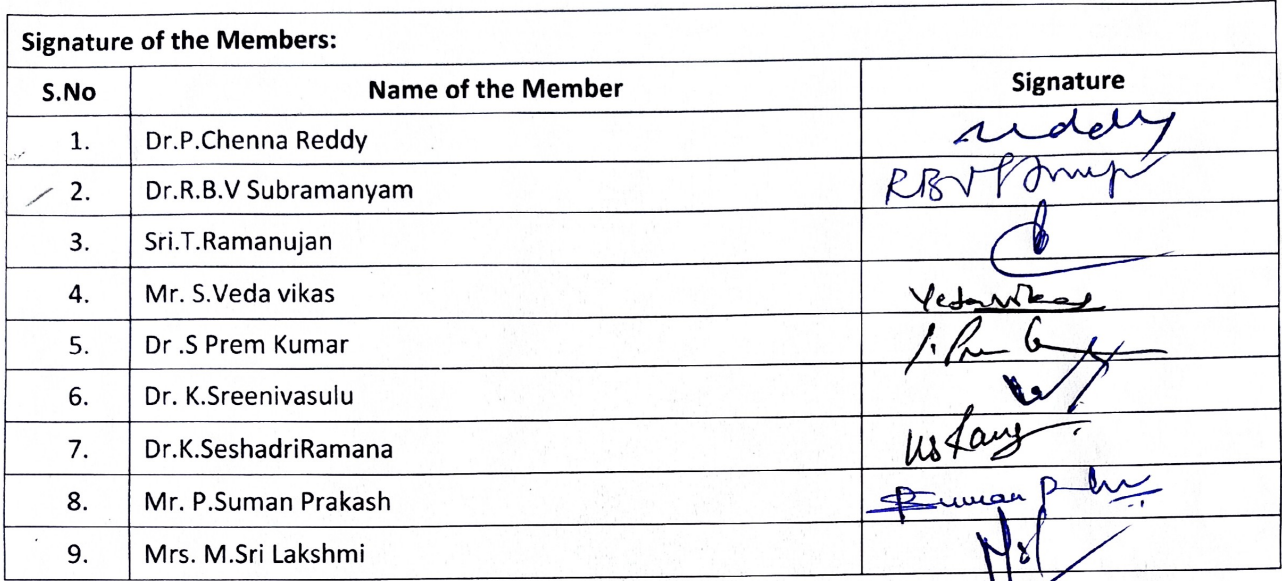 Signature of the Members:
S.No Name of the Member Signature
1. Dr.P.Chenna Reddy reddy
2. Dr.R.B.V Subramanyam RBV
3. Sri.T.Ramanujan
4. Mr. S.Veda vikas Vedavikas
5. Dr .S Prem Kumar
6. Dr. K.Sreenivasulu
7. Dr.K.SeshadriRamana
8. Mr. P.Suman Prakash
9. Mrs. M.Sri Lakshmi